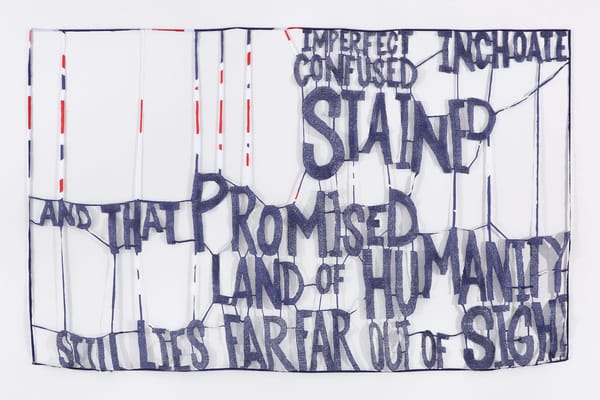 IMPERFECT INCHOATE
CONFUSED
STAINED
AND THAT PROMISED
LAND OF HUMANITY
STILL LIES FAR FAR OUT OF SIGHT